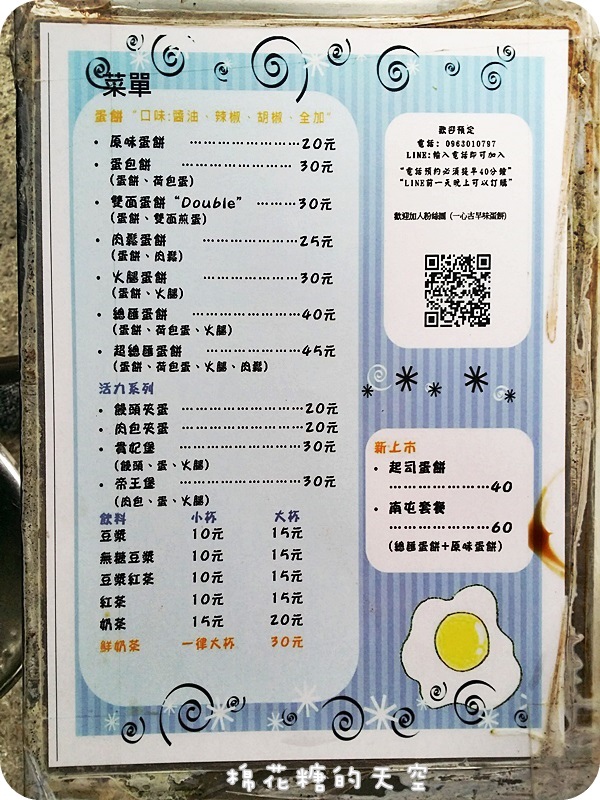 菜單
蛋餅 "口味:醬油、辣椒、胡椒、全加"
• 原味蛋餅 …………………20元
• 蛋包餅 …………………30元
(蛋餅、荷包蛋)
• 雙面蛋餅"Double" ………30元
(蛋餅、雙面煎蛋)
• 肉鬆蛋餅 ………………25元
(蛋餅、肉鬆)
• 火腿蛋餅 ………………30元
(蛋餅、火腿)
• 總匯蛋餅 …………………40元
(蛋餅、荷包蛋、火腿)
• 超總匯蛋餅 ………………45元
(蛋餅、荷包蛋、火腿、肉鬆)
活力系列
• 饅頭夾蛋 ……………………20元
• 肉包夾蛋 ……………………20元
• 貴妃堡 ……………………30元
(饅頭、蛋、火腿)
• 帝王堡 ……………………30元
(肉包、蛋、火腿)
飲料 小杯 大杯
豆漿 10元 15元
無糖豆漿 10元 15元
豆漿紅茶 10元 15元
紅茶 10元 15元
奶茶 15元 20元
鮮奶茶 一律大杯 30元
歡迎預定
電話: 0963010797
LINE:輸入電話即可加入
"電話預約必須提早40分鐘"
"LINE前一天晚上可以訂購"
歡迎加入粉絲團 (一心古早味蛋餅)
新上市
• 起司蛋餅
……………………40
• 南屯套餐
……………………60
(總匯蛋餅+原味蛋餅)
棉花糖的天空